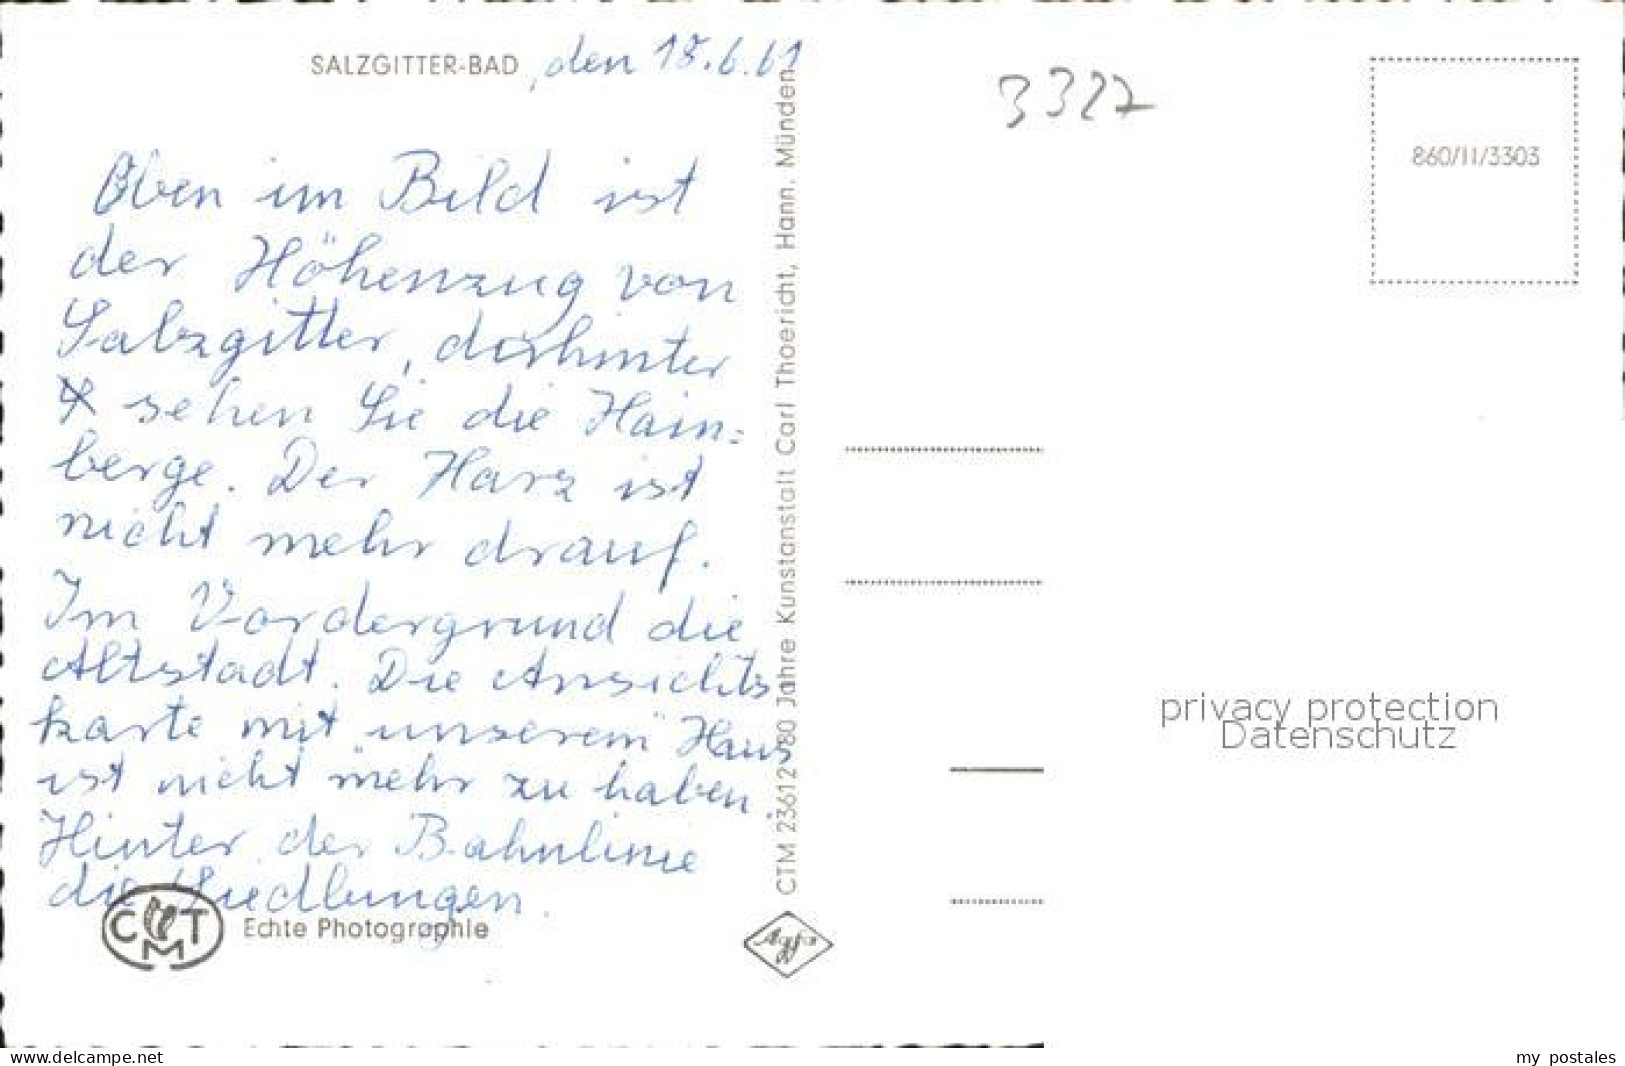 SALZGITTER-BAD, den 18.6.61
Oben im Bild ist
der Höhenzug von
Salzgitter, dahinter
sehen Sie die Hain=
berge. Der Harz ist
nicht mehr drauf.
Im Vordergrund die
Altstadt. Die Ansichts
karte mit "unserem" Haus
ist nicht mehr zu haben.
Hinter der Bahnlinie
die Siedlungen.
CMT
Echte Photographie
CTM 23612 80 Jahre Kunstanstalt Carl Thoericht, Hann. Münden
Agfa
3327
860/II/3303
privacy protection
Datenschutz
www.delcampe.net
my_postales